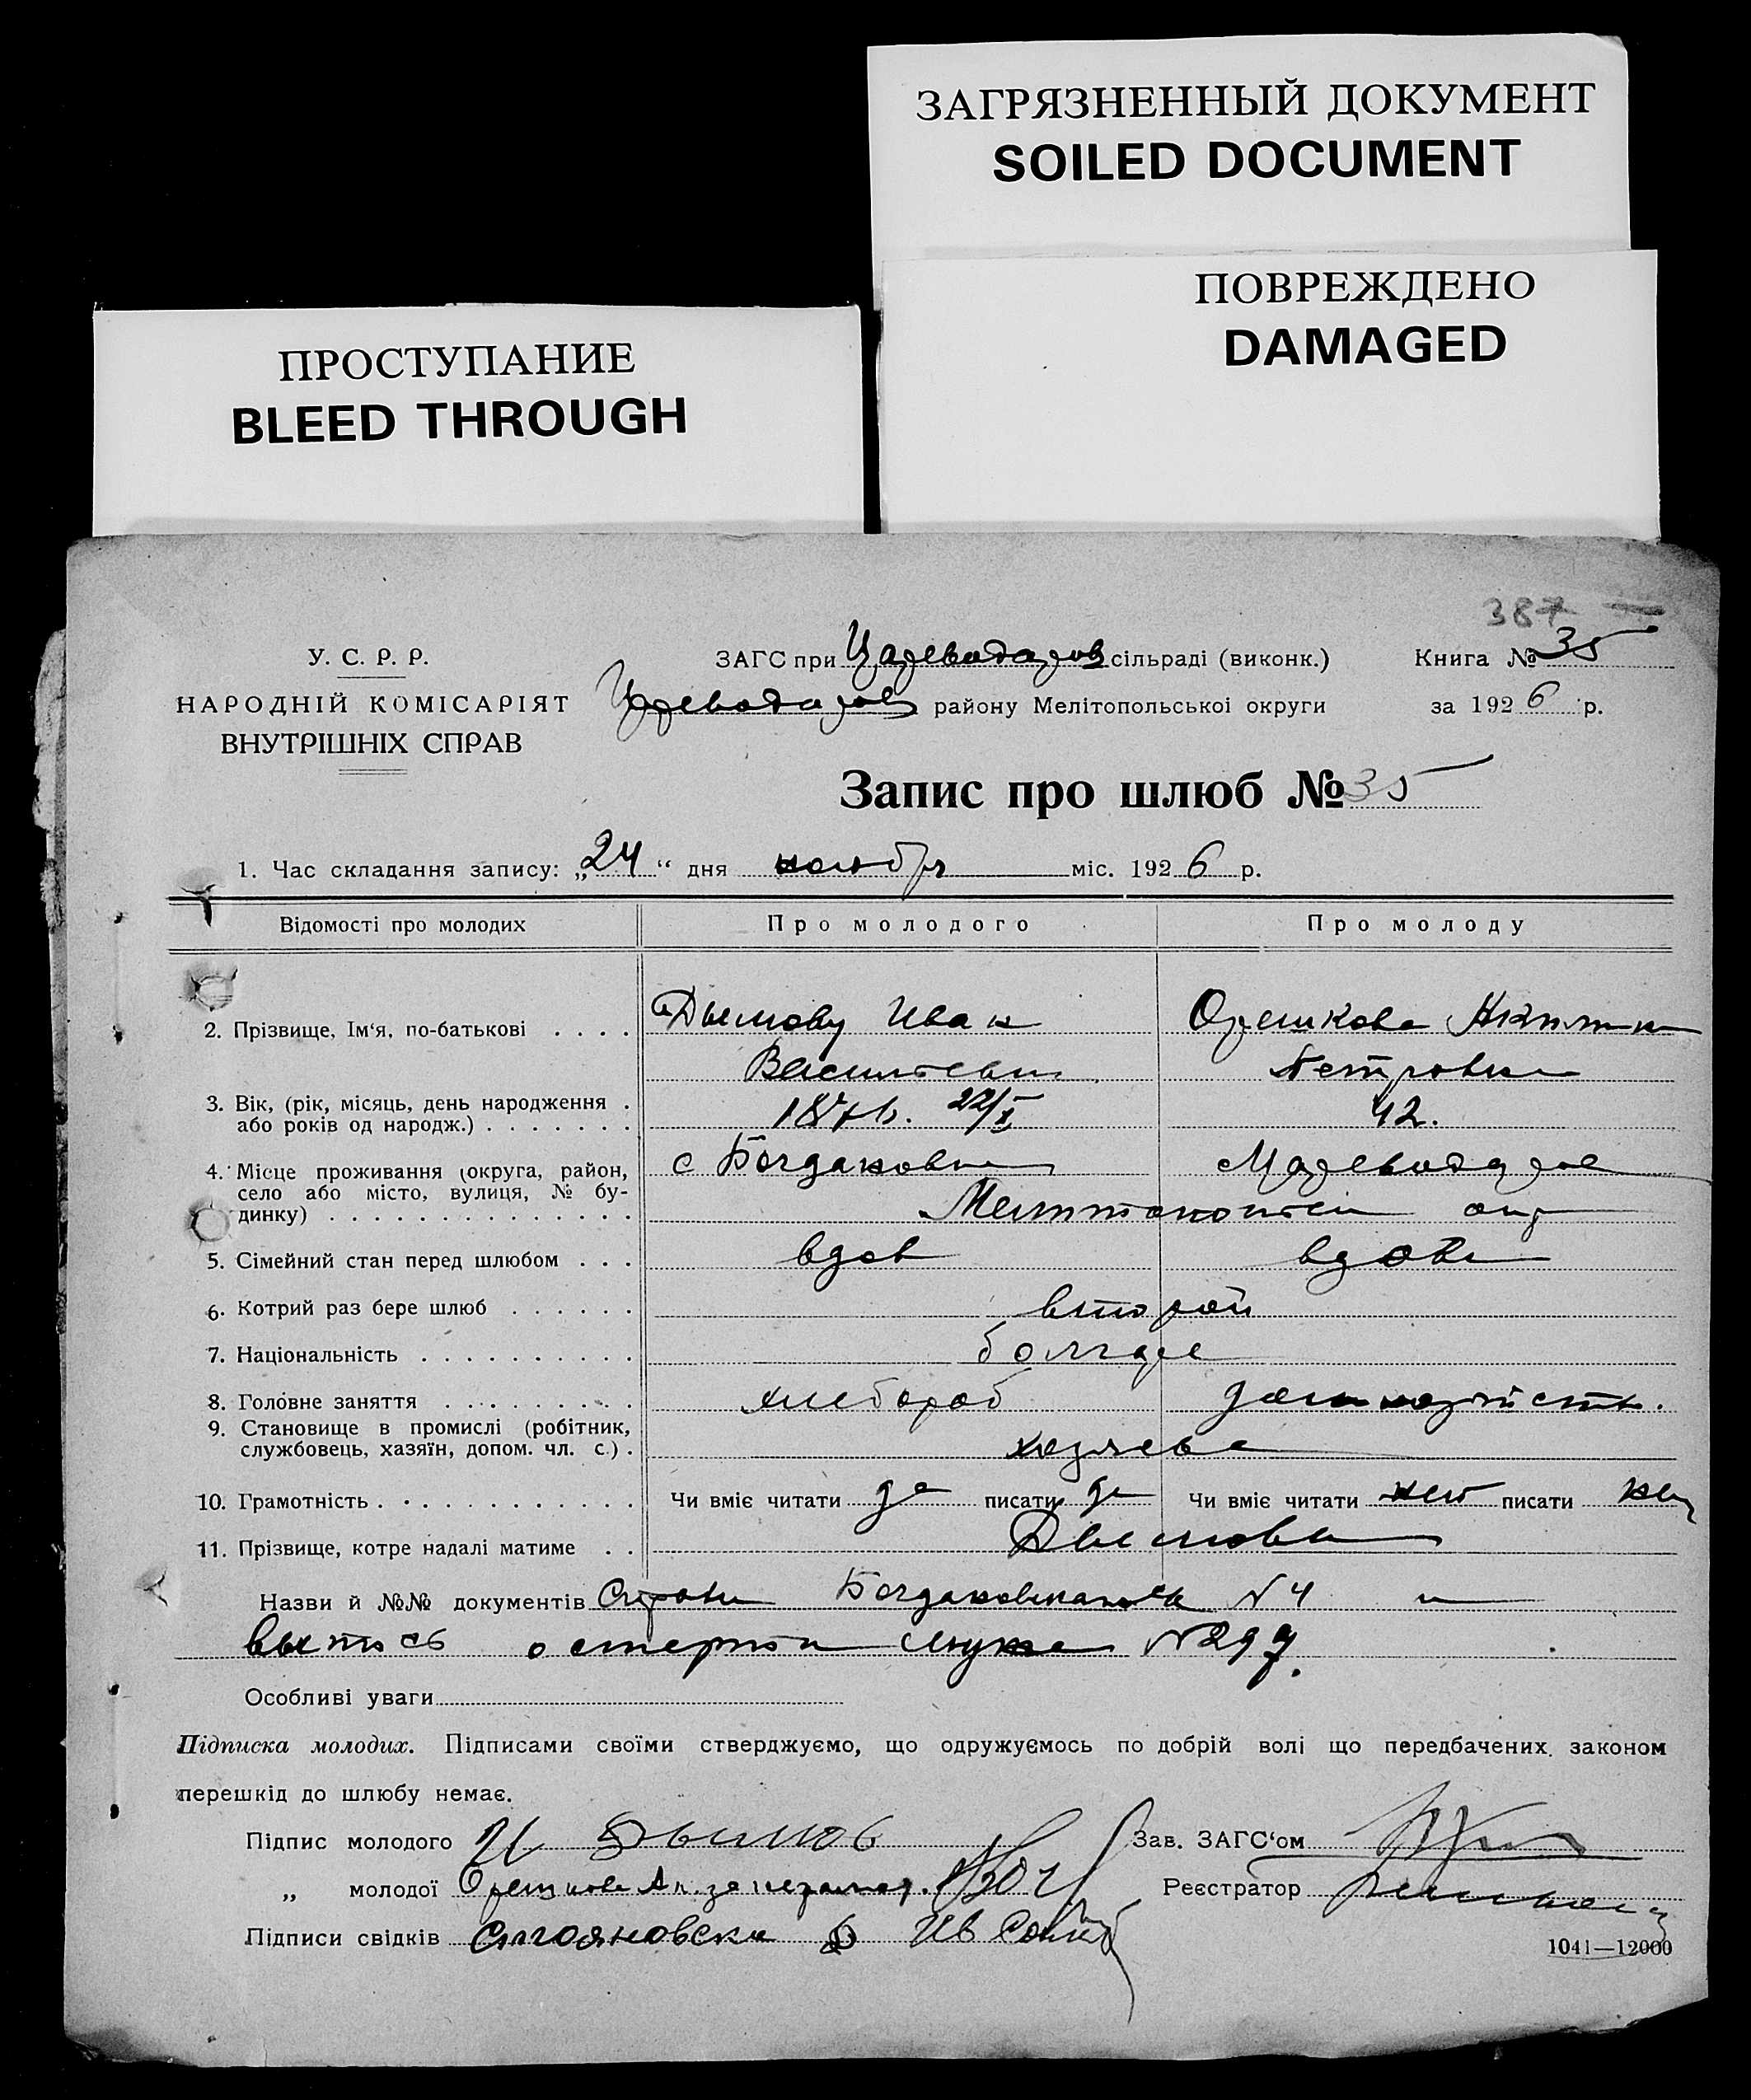 ЗАГРЯЗНЕННЫЙ ДОКУМЕНТ
SOILED DOCUMENT
ПОВРЕЖДЕНО
DAMAGED
ПРОСТУПАНИЕ
BLEED THROUGH
387
У. С. Р. Р.
НАРОДНІЙ КОМІСАРІЯТ
ВНУТРІШНІХ СПРАВ
ЗАГС при Цареводаров сільраді (виконк.)
Цареводаров району Мелітопольськоі округи
Книга № 35
за 1926 р.
Запис про шлюб № 35
1. Час складання запису: „24“ дня ноября міс. 1926 р.
Відомості про молодих Про молодого Про молоду
2. Прізвище, Ім‘я, по-батькові . . . . Дымову Иван Орешкова
Васильевич Петровна
3. Вік, (рік, місяць, день народження .
або років од народж.) . . . . . . . 22/X 42.
4. Місце проживання (округа, район,
село або місто, вулиця, № бу-
динку) . . . . . . . . . . . . . .
с Богдановка
5. Сімейний стан перед шлюбом . . . вдов вдова
6. Котрий раз бере шлюб . . . . . . второй
7. Національність . . . . . . . . . . болгаре
8. Головне заняття . . . . . . . . . хлебороб
9. Становище в промислі (робітник,
службовець, хазяїн, допом. чл. с.) . хозяева
10. Грамотність . . . . . . . . . . . . Чи вміє читати да писати да Чи вміє читати нет писати нет
11. Прізвище, котре надалі матиме . . Дымова
Назви й №№ документів N 4 и
выпись о смерти мужа N 297.
Особливі уваги
Підписка молодих. Підписами своїми стверджуємо, що одружуємось по добрій волі що передбачених законом
перешкід до шлюбу немає.
Підпис молодого И Дымов Зав. ЗАГС‘ом
„ молодої Орешкова Ак. за неграмот. Реєстратор
Підписи свідків Стояновски Ив
1041—12000